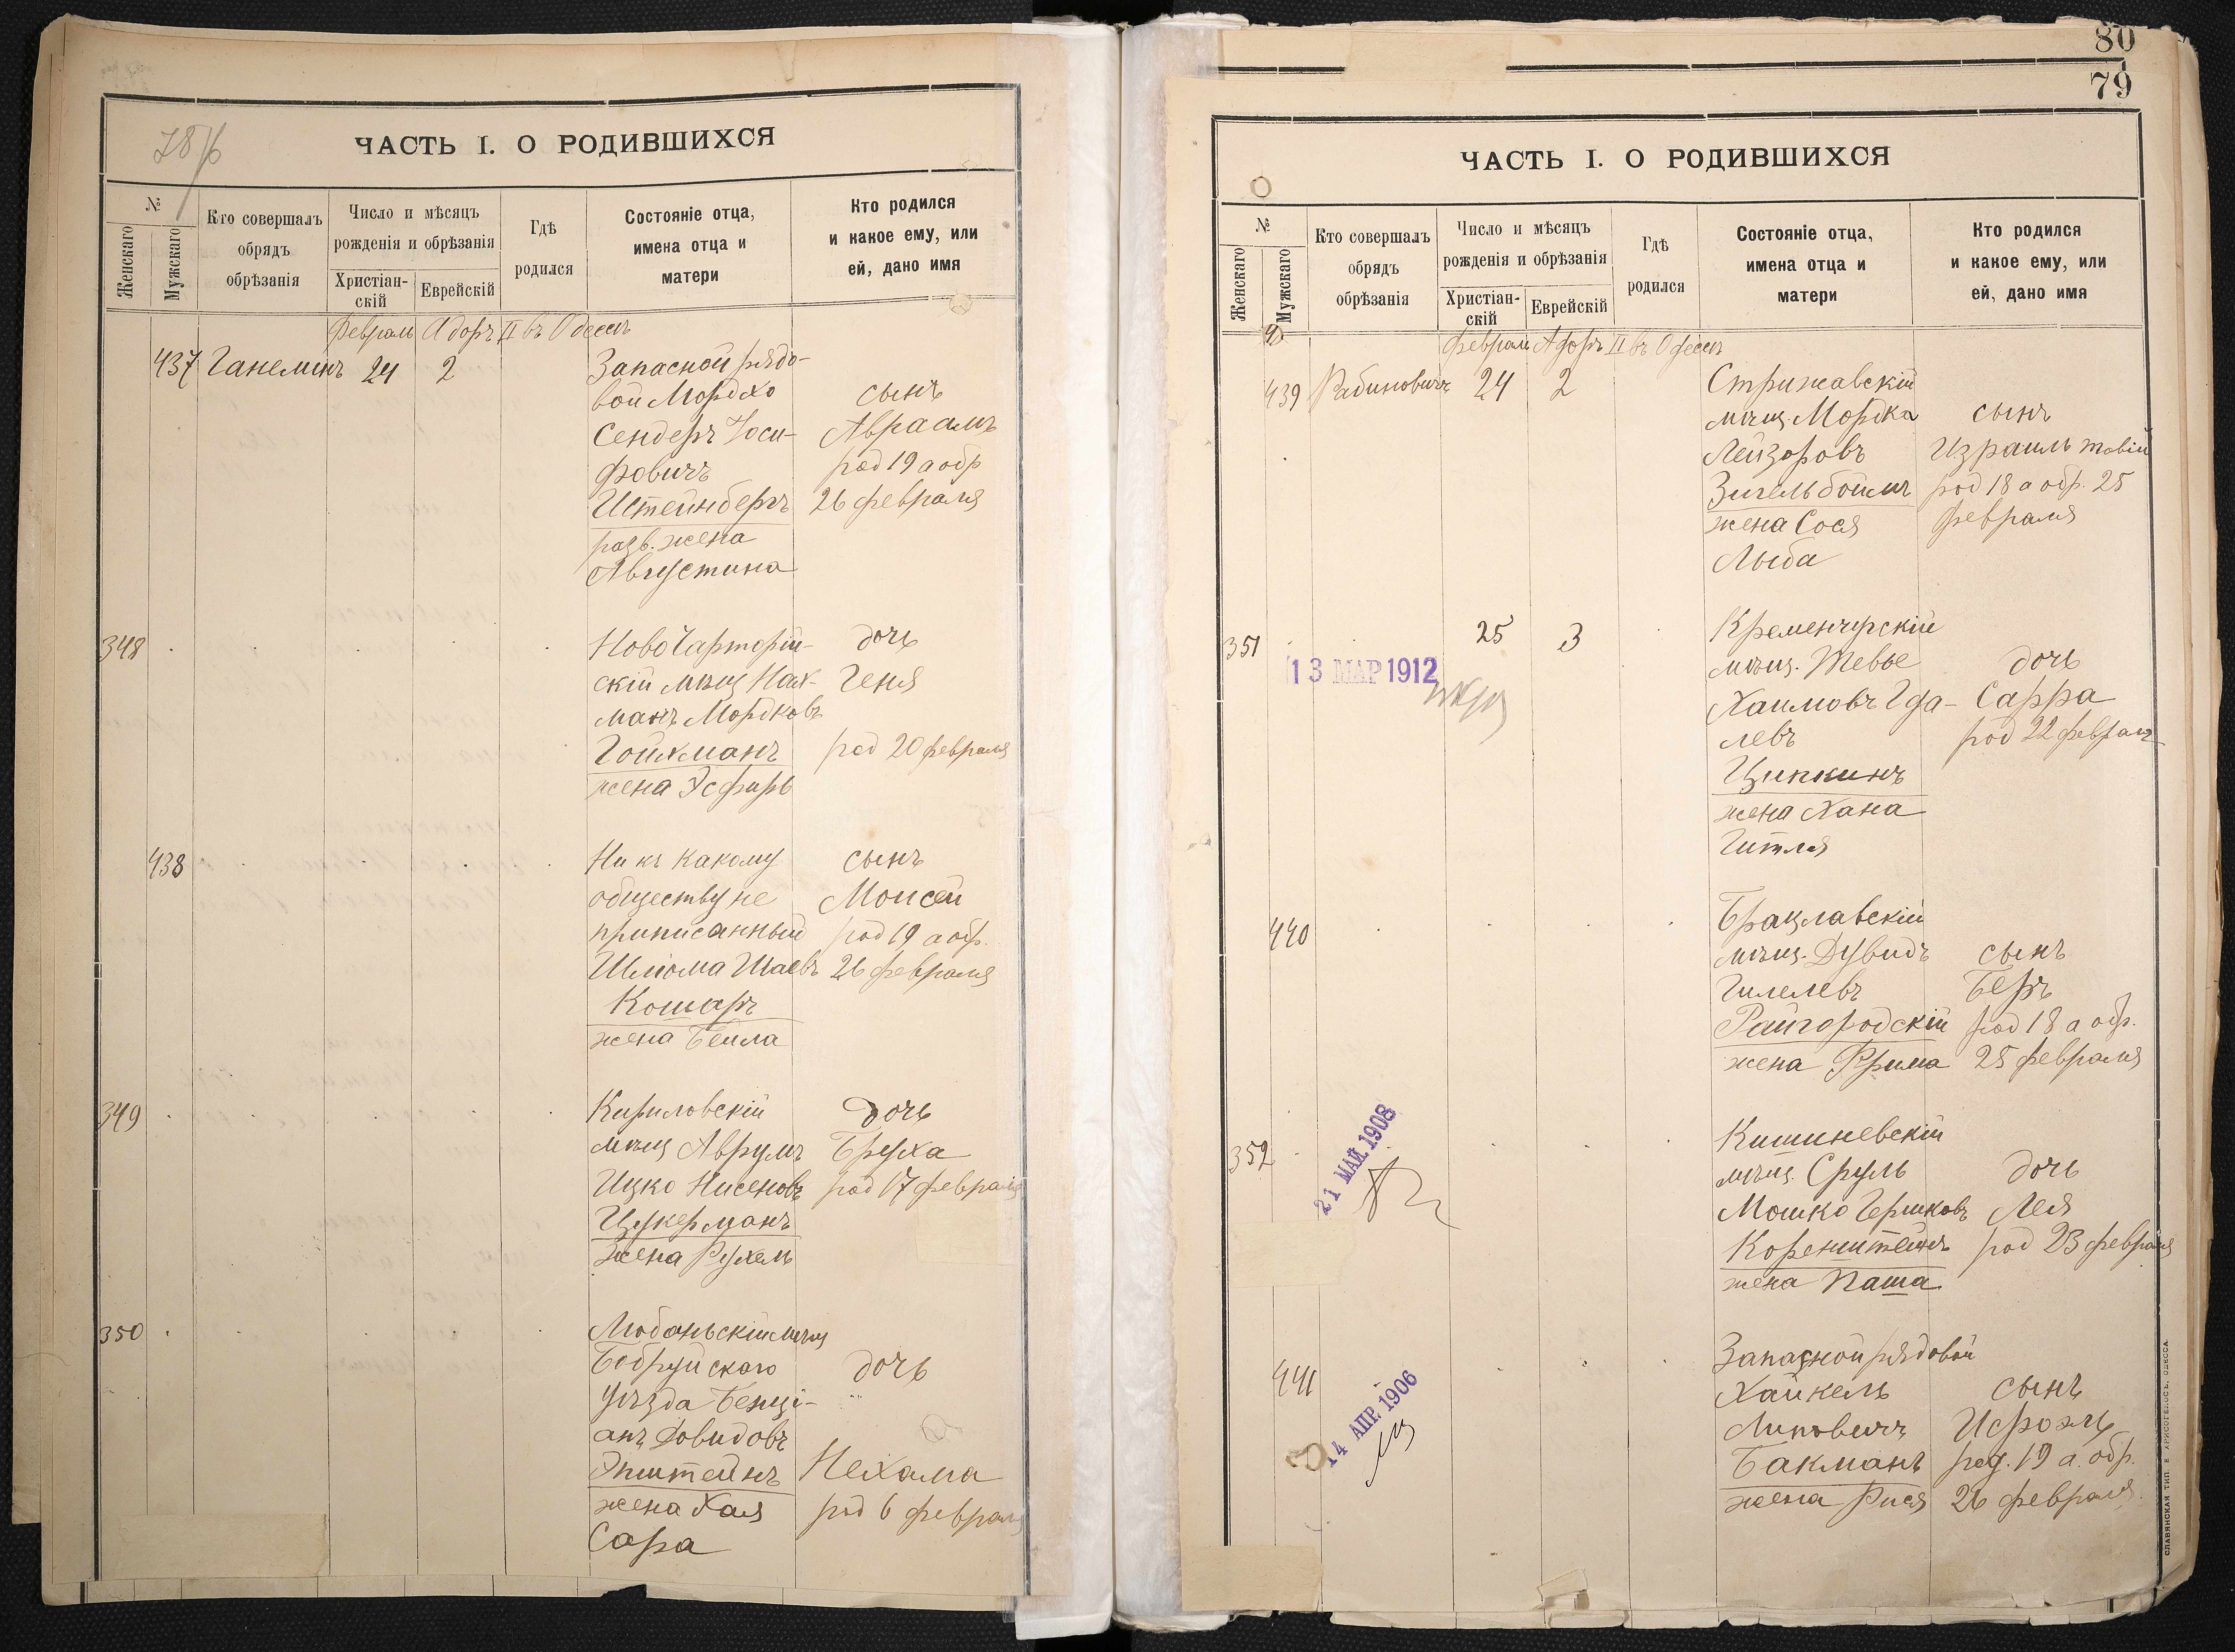 78/б
ЧАСТЬ I. О РОДИВШИХСЯ
№
Женскаго
Мужскаго
Кто совершалъ
обрядъ
обрѣзанія
Число и мѣсяцъ
рожденія и обрѣзанія
Христіан-
скій
Еврейскій
Гдѣ
родился
Состояніе отца,
имена отца и
матери
Кто родился
и какое ему, или
ей, дано имя
Февраль Адаръ II въ Одессѣ
437 Ганелинъ 24 2
Запасной рядо-
вой Мордхо
Сендеръ Іоси-
фовичъ
Штейнбергъ
разв. жена
Августина
сынъ
Авраамъ
род 19 а обр
26 февраля
348
Ново Чарторій-
скій мѣщ Нах-
манъ Мордковъ
Гойхманъ
жена Эсфирь
дочь
Геня
род 20 февраля
438
Ни къ какому
обществу не
приписанный
Шліома Шаевъ
Кошаръ
жена Бейла
сынъ
Моисей
род 19 а обр.
26 февраля
349
Кириловскій
мѣщ Аврумъ
Ицко Нисеновъ
Цукерманъ
жена Рухель
дочь
Бруха
род 17 февраля
350
Любаньскій мѣщ
Бобруйскаго
уѣзда Бенці-
анъ Довидовъ
Эпштейнъ
жена Хая
Сара
дочь
Нехама
род 6 февраля
80
79
ЧАСТЬ I. О РОДИВШИХСЯ
№
Женскаго
Мужскаго
Кто совершалъ
обрядъ
обрѣзанія
Число и мѣсяцъ
рожденія и обрѣзанія
Христіан-
скій
Еврейскій
Гдѣ
родился
Состояніе отца,
имена отца и
матери
Кто родился
и какое ему, или
ей, дано имя
Февраль Адаръ II въ Одессѣ
439 Рабиновичъ 24 2
Стрижавскій
мѣщ. Мордка
Лейзоровъ
Зигельбоймъ
жена Сося
Лыба
сынъ
Израиль Товій
род 18 а обр. 25
февраля
351
25 3
13 МАР 1912
Кременчугскій
мѣщ. Тевье
Хаимовъ Гда-
левъ
Ципкинъ
жена Хана
Гитля
дочь
Сарра
род 22 февраля
440
Брацлавскій
мѣщ. Дувидъ
Гилелевъ
Райгородскій
жена Фрима
сынъ
Беръ
род 18 а обр.
25 февраля
352
21 МАЙ 1908
Кишиневскій
мѣщ. Сруль
Мошко Гершковъ
Коренштейнъ
жена Паша
дочь
Лея
род 23 февраля
441
14 АПР. 1906
Запасной рядовой
Хайкель
Липовичъ
Бакманъ
жена Рися
сынъ
Исроэль
род. 19 а. обр.
26 февраля.
СЛАВЯНСКАЯ ТИП. Е ХРИСОГЕЛОСЪ, ОДЕССА.